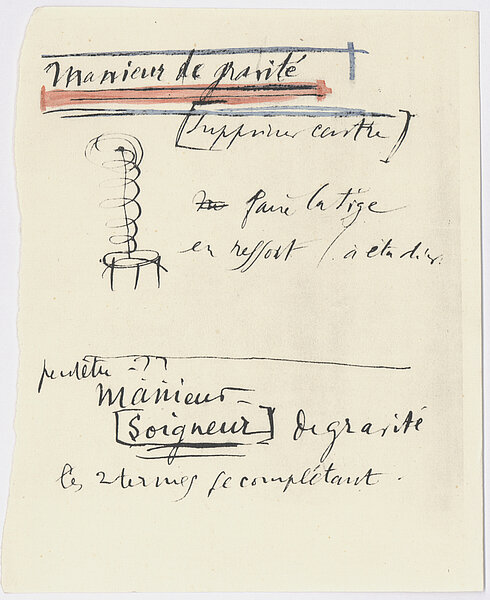 Manieur de gravité
[Supprimer centre]
faire la tige
en ressort (à étudier
peut être - ??
Manieur -
[Soigneur] de gravité
les 2 termes se complétant.